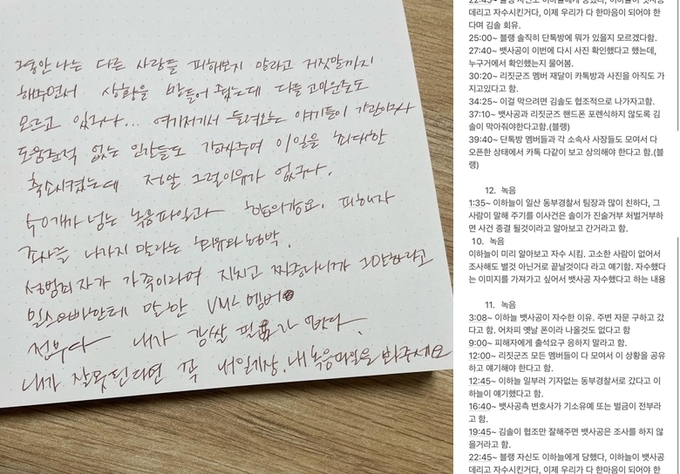 그동안 나는 다른 사람들 피해보지 말라고 거짓말까지
해주면서 상황을 만들어 줬는데 다들 고마운줄도
모르고 있구나... 여기저기서 들려오는 얘기들이 기관이고사
도움 도 없는 인간들도 감싸주며 이일을 최대한
축소시켰는데 정말 그럴이유가 없구나.
40개가 넘는 녹음파일과 합의강요, 피해자
조사를 나가지 말라는 회유와 협박.
성범죄자가 가족이라며 지치고 짜증나니까 그만하라고
말한 VMC 멤버
전부다 내가 감쌀 필요가 없다.
내가 잘못된다면 꼭 내 일기장, 내 녹음파일을 봐주세요
데리고 자수시킨거다, 이제 우리가 다 한마음이 되어야 한
다며 김솔 회유.
25:00~ 블랭 솔직히 단톡방에 뭐가 있을지 모르겠다함.
27:40~ 뱃사공이 이번에 다시 사진 확인했다고 했는데,
누구거에서 확인했는지 물어봄.
30:20~ 리짓군즈 멤버 재달이 카톡방과 사진을 아직도 가
지고있다고 함.
34:25~ 이걸 막으려면 김솔도 협조적으로 나가자고함.
37:10~ 뱃사공과 리짓군즈 핸드폰 포렌식하지 않도록 김
솔이 막아줘야한다고함.(블랭)
39:40~ 단톡방 멤버들과 각 소속사 사장들도 모여서 다
오픈한 상태에서 카톡 다같이 보고 상의해야 한다고 함.(블
랭)
12. 녹음
1:35~ 이하늘이 일산 동부경찰서 팀장과 많이 친하다, 그
사람이 말해 주기를 이사건은 솔이가 진술거부 처벌거부하
면 사건 종결 될것이라고 알아보고 간거라고 함.
10. 녹음
이하늘이 미리 알아보고 자수 시킴. 고소한 사람이 없어서
조사해도 별것 아닌거로 끝날것이다 라고 얘기함. 자수했다
는 이미지를 가져가고 싶어서 뱃사공 자수했다고 하는 내용
11. 녹음
3:08~ 이하늘 뱃사공이 자수한 이유. 주변 자문 구하고 갔
다고 함. 어차피 옛날 폰이라 나올것도 없다고 함
9:00~ 피해자에게 출석요구 응하지 말라고 함.
12:00~ 리짓군즈 모든 멤버들이 다 모여서 이 상황을 공유
하고 얘기해야 한다고 함.
12:45~ 이하늘 일부러 기자없는 동부경찰서로 갔다고 이
하늘이 얘기했다고 함.
16:40~ 뱃사공측 변호사가 기소유예 또는 벌금이 전부라
고 함.
19:45~ 김솔이 협조만 잘해주면 뱃사공은 조사를 하지 않
을거라고 함.
22:45~ 블랭 자신도 이하늘에게 당했다, 이하늘이 뱃사공
데리고 자수시킨거다, 이제 우리가 다 한마음이 되어야 한